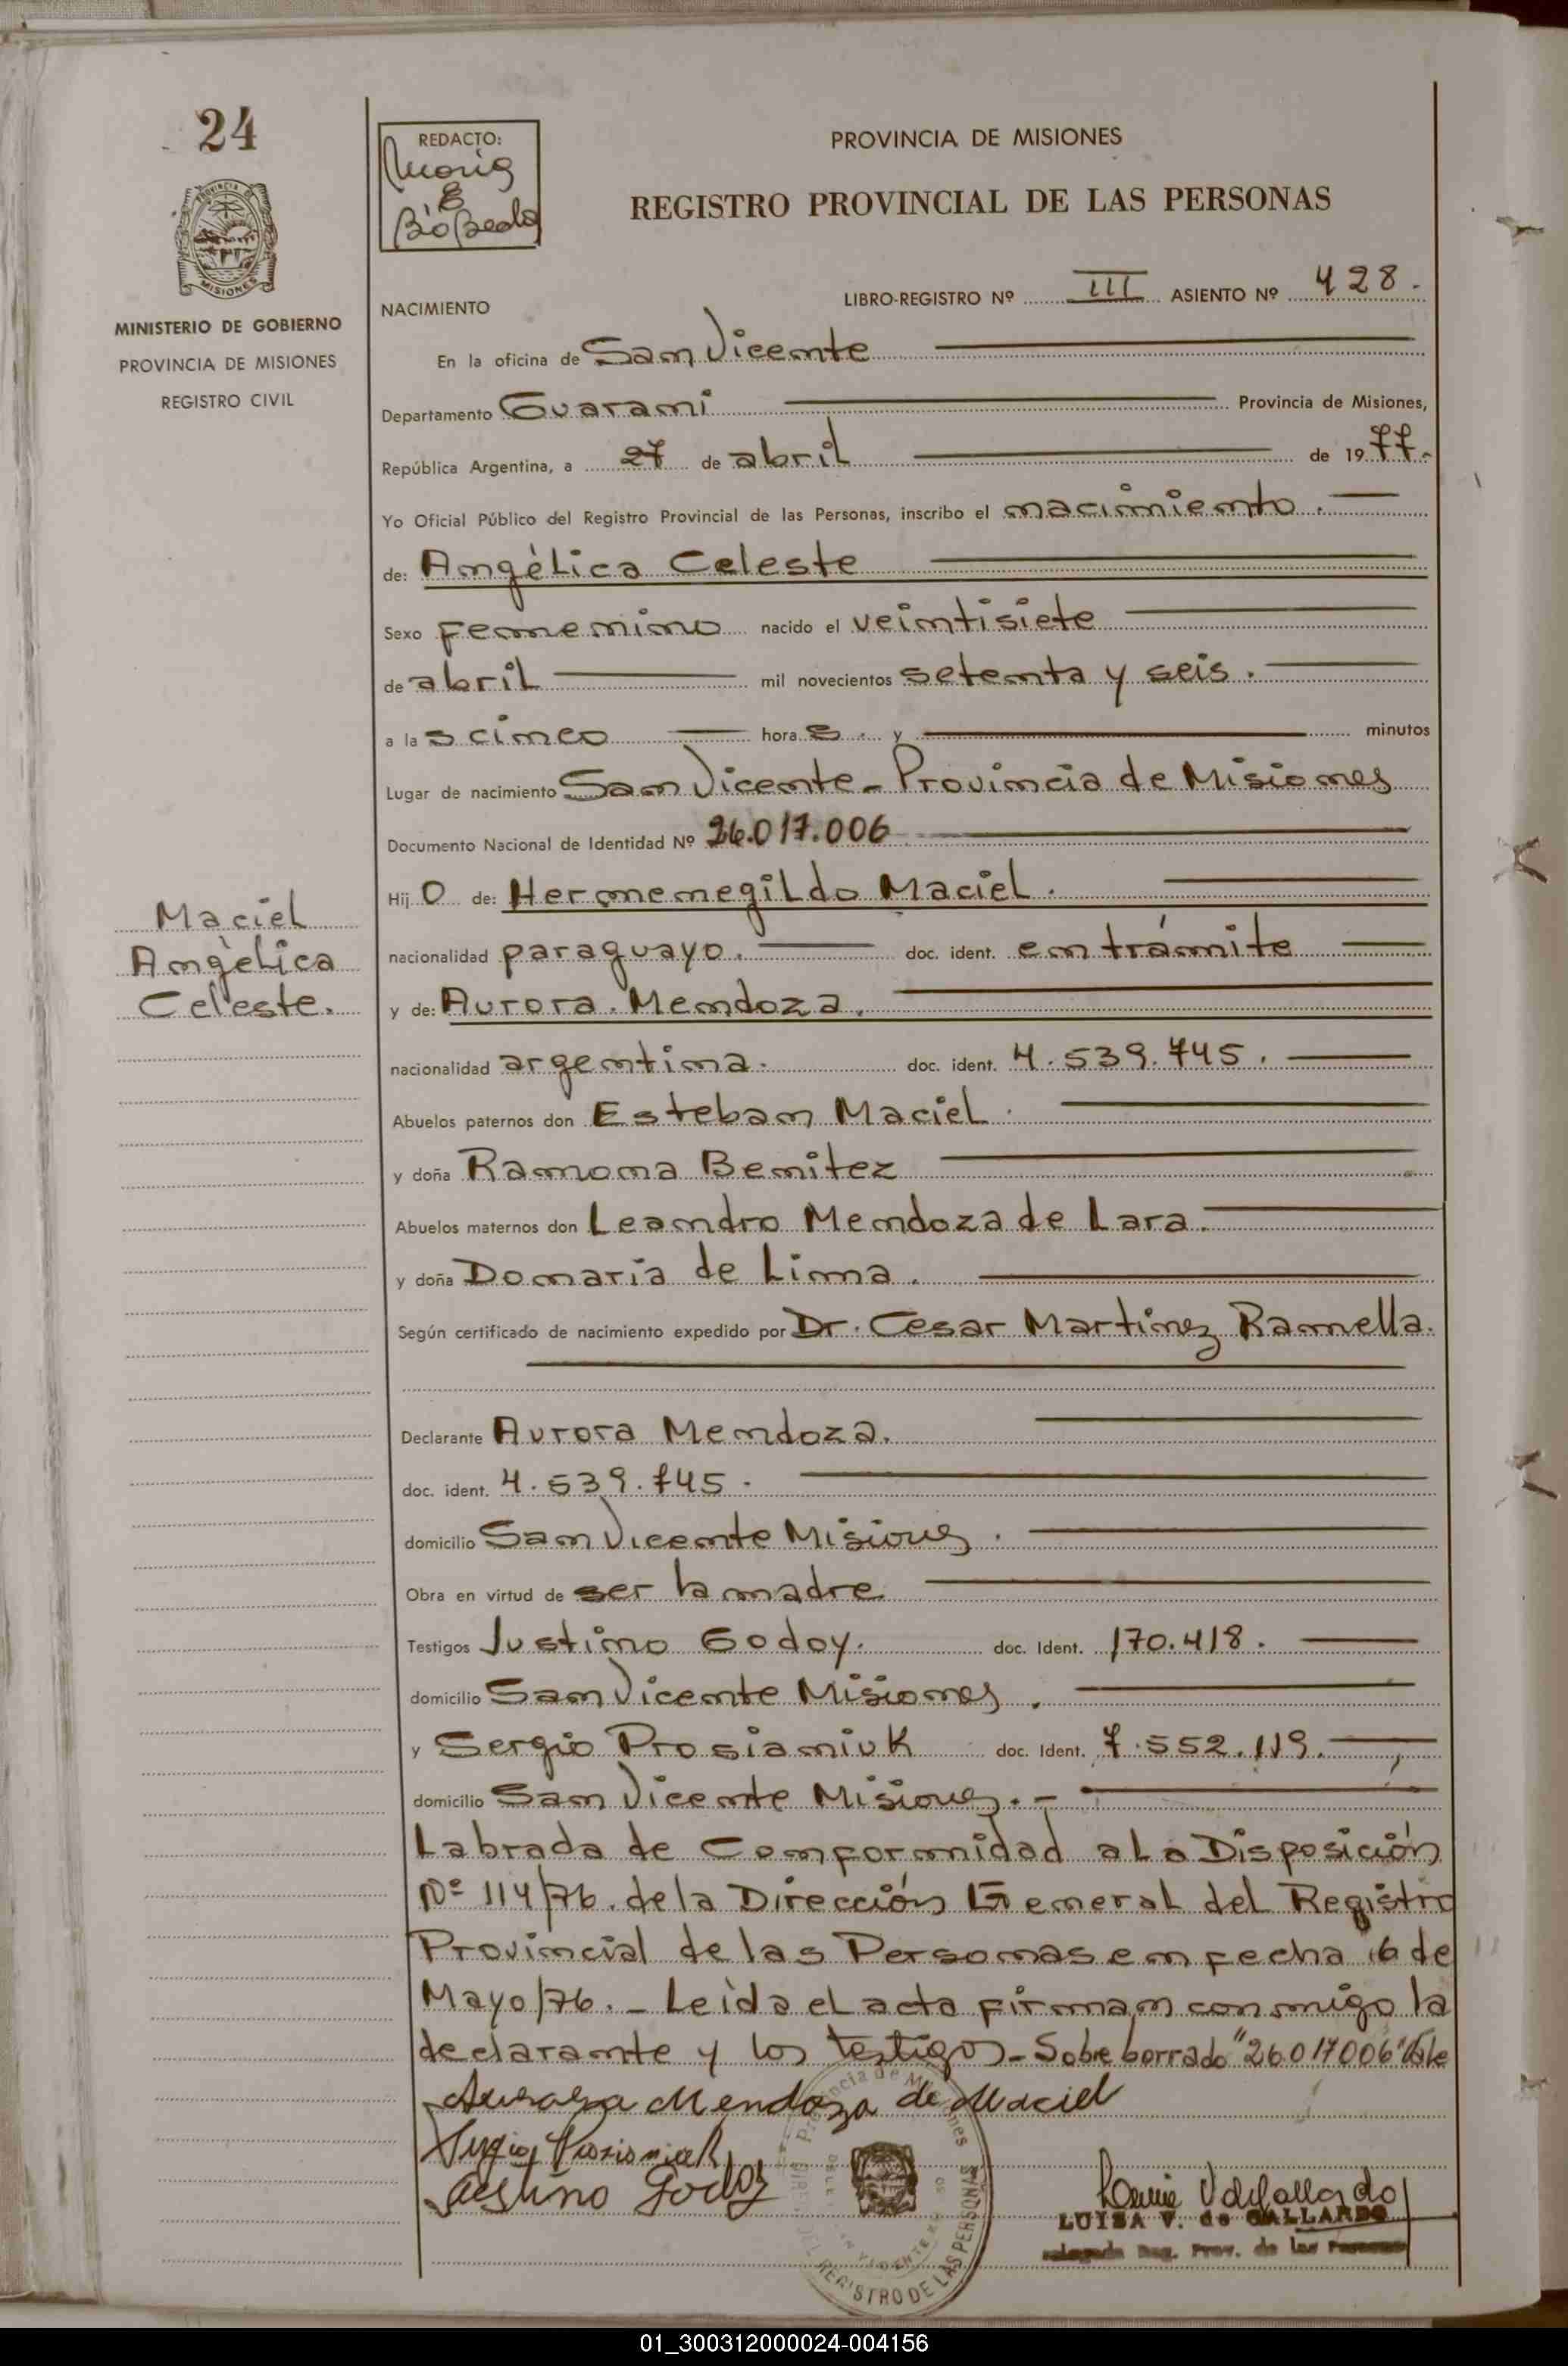 24
REDACTO:
PROVINCIA DE MISIONES
REGISTRO PROVINCIAL DE LAS PERSONAS
MISIONES
MINISTERIO DE GOBIERNO
PROVINCIA DE MISIONES
REGISTRO CIVIL
NACIMIENTO
LIBRO-REGISTRO Nº III ASIENTO Nº 428.
En la oficina de San Vicente
Departamento Guarani Provincia de Misiones,
República Argentina, a 27 de abril de 1977.
Yo Oficial Público del Registro Provincial de las Personas, inscribo el nacimiento.
de: Angèlica Celeste
Sexo femenino nacido el veintisiete
de abril mil novecientos setenta y seis.
a las cinco horas. y minutos
Lugar de nacimiento San Vicente - Provincia de Misiones
Documento Nacional de Identidad Nº 26.017.006
Hijo de: Hermenegildo Maciel.
Maciel
Angèlica
Celeste.
nacionalidad paraguayo. doc. ident. en trámite
y de: Aurora Mendoza.
nacionalidad argentina. doc. ident. 4.539.745.
Abuelos paternos don Esteban Maciel.
y doña Ramona Benitez
Abuelos maternos don Leandro Mendoza de Lara.
y doña Domaria de Lima.
Según certificado de nacimiento expedido por Dr. Cesar Martinez Ramella.
Declarante Aurora Mendoza.
doc. ident. 4.539.745.
domicilio San Vicente Misiones.
Obra en virtud de ser la madre
Testigos Justino Godoy. doc. Ident. 170.418.
domicilio San Vicente Misiones.
y Sergio Prosianiuk doc. Ident. 7.552.119.
domicilio San Vicente Misiones. -
Labrada de Conformidad a la Disposición
Nº 114/76. de la Dirección General del Registro
Provincial de las Personas en fecha 16 de
Mayo/76. - Leida el acta firman conmigo la
declarante y los testigos - Sobre borrado "26017006" Vale
Aurora Mendoza de Maciel
Justino Godoy
LUISA V. de GALLARDO
Reg. Prov. de las Personas
REGISTRO DE LAS PERSONAS
01_300312000024-004156